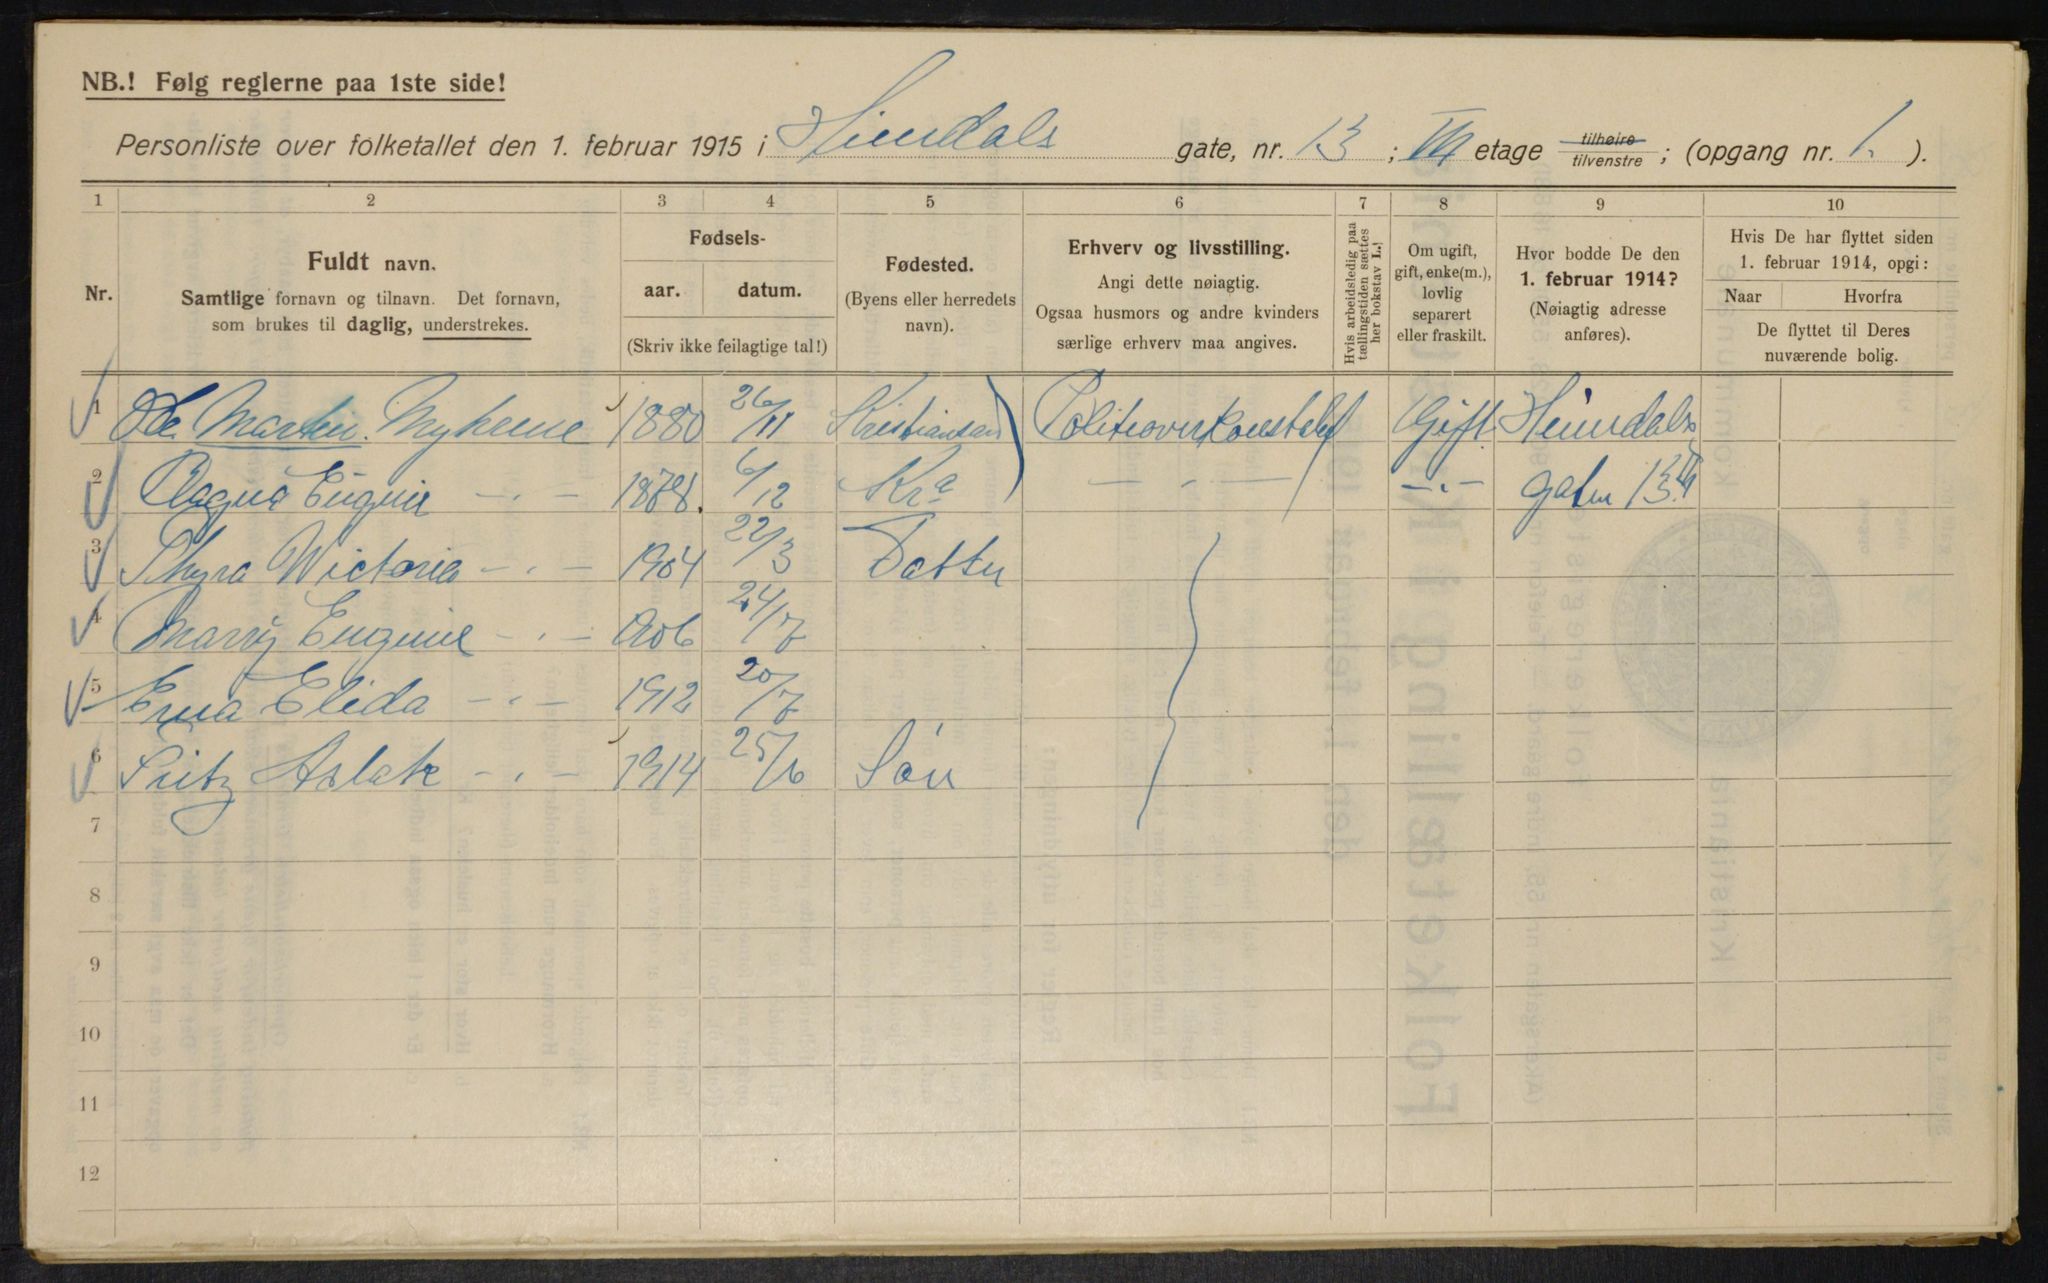 NB.! Følg reglerne paa 1ste side!
Personliste over folketallet den 1. februar 1915 i Heimdals gate, nr. 13 ; III etage tilhøire tilvenstre ; (opgang nr. 1. ).
1 2 3 4 5 6 7 8 9 10
Nr.
Fuldt navn.
Samtlige fornavn og tilnavn. Det fornavn,
som brukes til daglig, understrekes.
Fødsels-
aar. datum.
(Skriv ikke feilagtige tal!)
Fødested.
(Byens eller herredets
navn).
Erhverv og livsstilling.
Angi dette nøiagtig.
Ogsaa husmors og andre kvinders
særlige erhverv maa angives.
Hvis arbeidsledig paa
tællingstiden sættes
her bokstav L.!
Om ugift,
gift, enke(m.),
lovlig
separert
eller fraskilt.
Hvor bodde De den
1. februar 1914?
(Nøiagtig adresse
anføres).
Hvis De har flyttet siden
1. februar 1914, opgi:
Naar Hvorfra
De flyttet til Deres
nuværende bolig.
1 Ole Martin 1880 26/11 Kristiansand Politioverkonstabel Gift Heimdals
2 Ragna Eugenie — . — 1878. 6/12 Kra — . — — . — gaten 13 III
3 Thyra Wictoria — . — 1904 22/3 Datter
4 Marry Eugenie — . — 1906 24/7
5 Erna Elida — . — 1912 20/7
6 Fritz Aslak — . — 1914 25/6 Søn
7
8
9
10
11
12